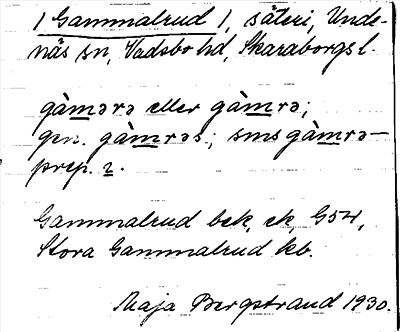 / Gammalrud /, säteri, Unde-
näs sn, Vadsbo hd, Skaraborgs l.
gàmərə eller gàmrə;
gen. gàmrəs; sms gàmrə-
prep. 2.
Gammalrud bek, ek, G54,
Stora Gammalrud kb.
Maja Bergstrand 1930.